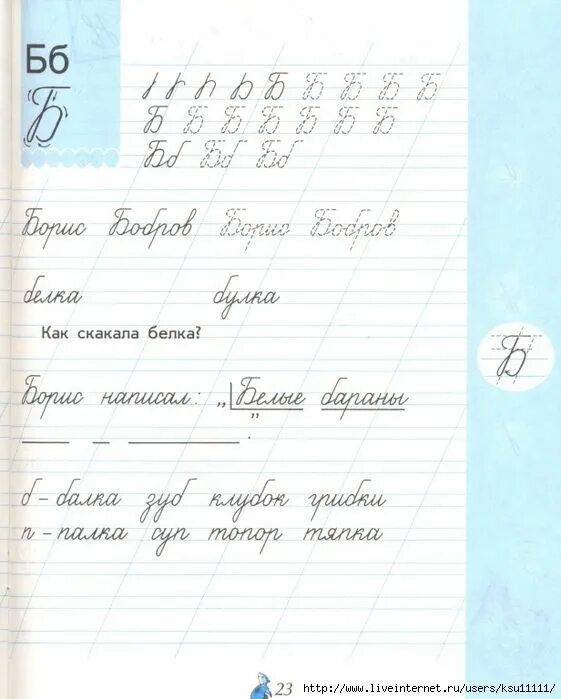 Бб
Б
Б Б Б Б Б
Б Б Б Б Б Б Б
Бб Бб Бб
Борис Бобров Борис Бобров
белка булка
Как скакала белка?
Б
Борис написал: „Белые бараны
”
.
б – балка зуб клубок грибки
п – палка суп топор тяпка
23
http://www.liveinternet.ru/users/ksu11111/